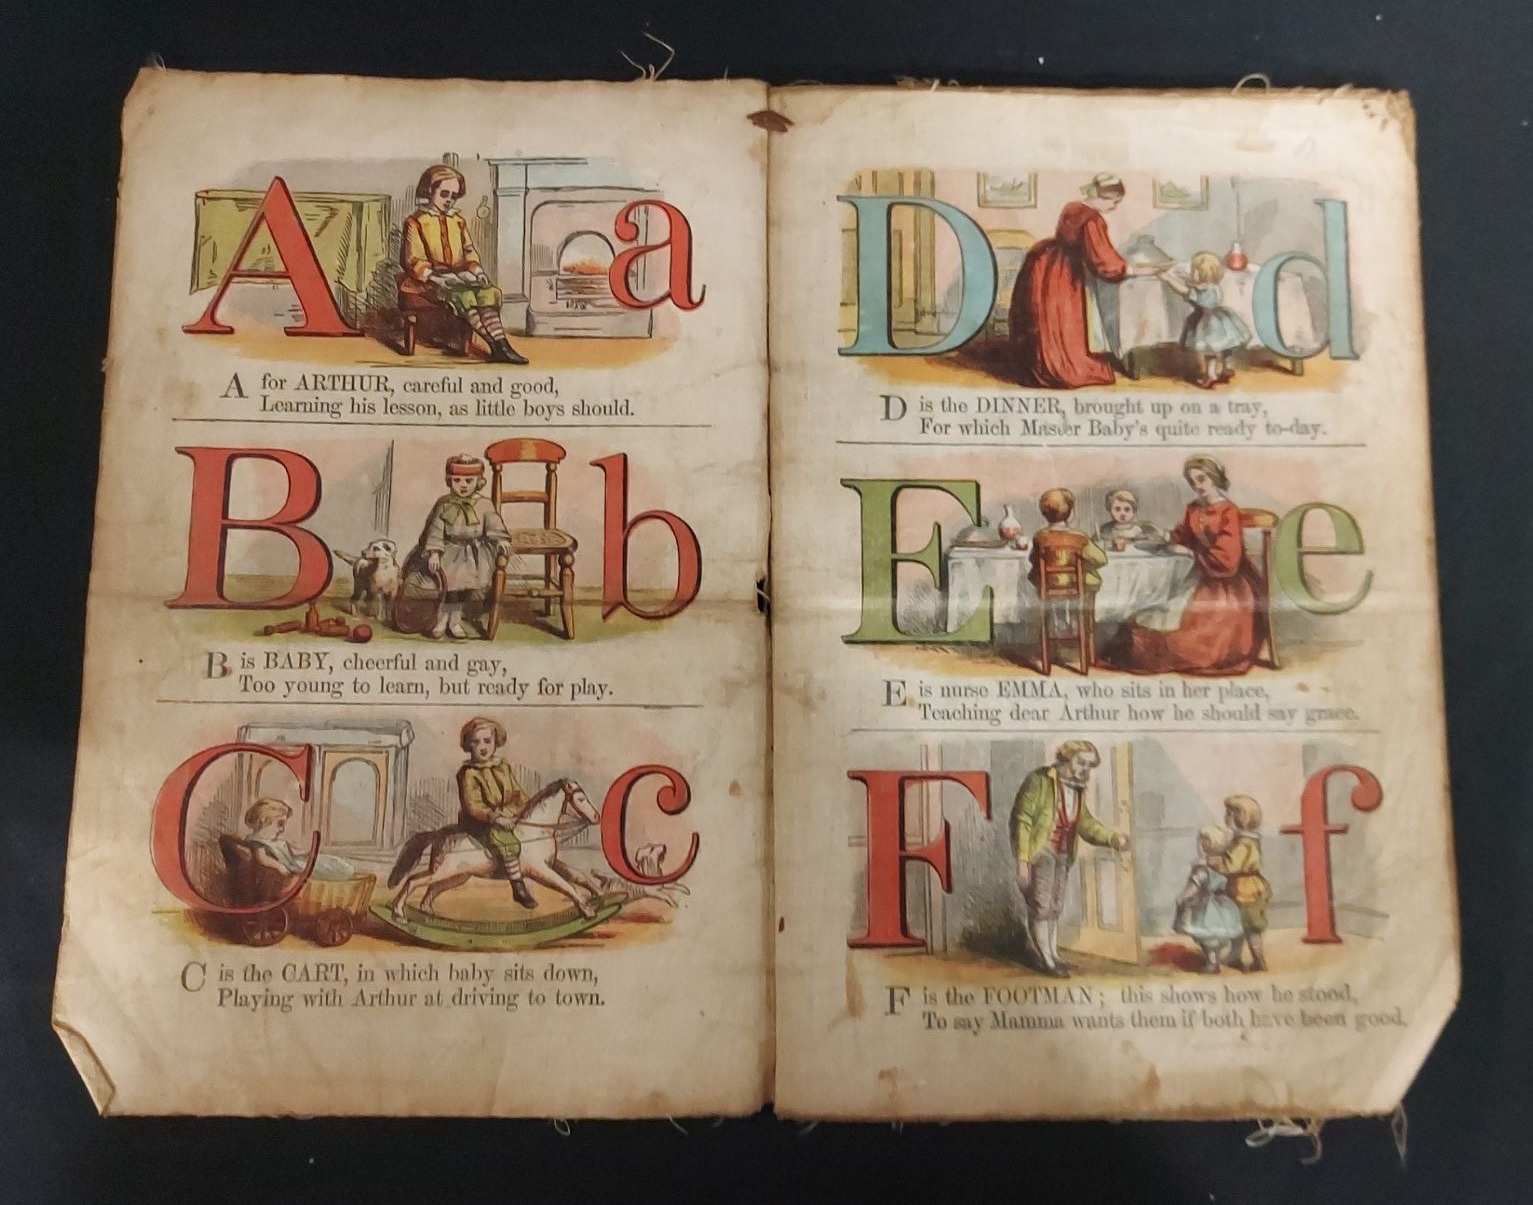 A a
A for ARTHUR, careful and good,
Learning his lesson, as little boys should.
B b
B is BABY, cheerful and gay,
Too young to learn, but ready for play.
C c
C is the CART, in which baby sits down,
Playing with Arthur at driving to town.
D d
D is the DINNER, brought up on a tray,
For which Master Baby's quite ready to-day.
E e
E is nurse EMMA, who sits in her place,
Teaching dear Arthur how he should say grace.
F f
F is the FOOTMAN; this shows how he stood,
To say Mamma wants them if both have been good.